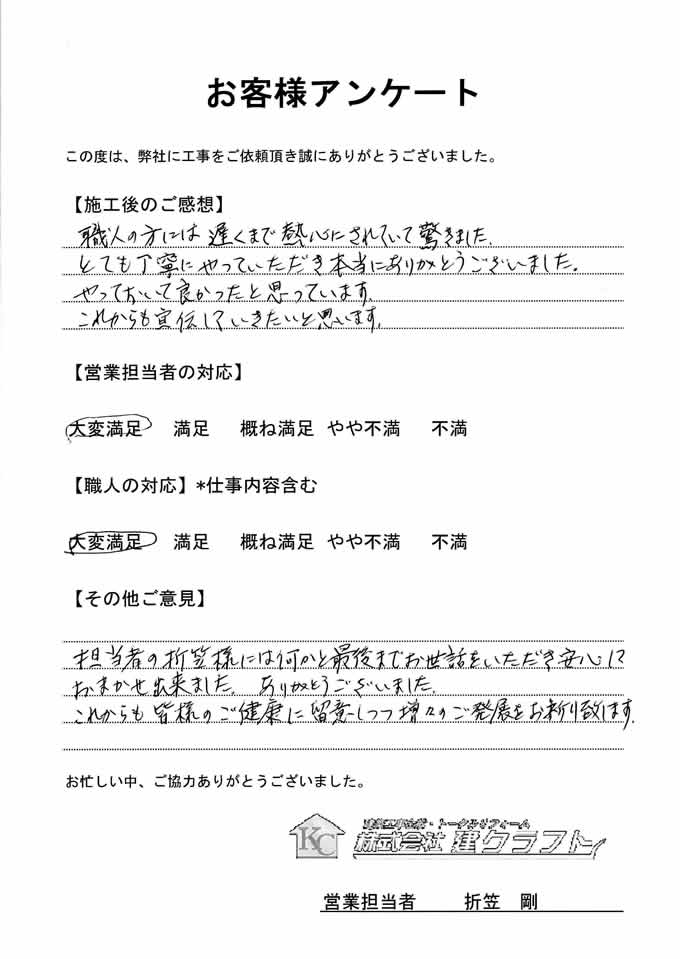 お客様アンケート
この度は、弊社に工事をご依頼頂き誠にありがとうございました。
【施工後のご感想】
職人の方には遅くまで熱心にされていて驚きました。
とても丁寧にやっていただき本当にありがとうございました。
やっておいて良かったと思っています。
これからも宣伝していきたいと思います。
【営業担当者の対応】
大変満足 満足 概ね満足 やや不満 不満
【職人の対応】*仕事内容含む
大変満足 満足 概ね満足 やや不満 不満
【その他ご意見】
担当者の折笠様には何かと最後までお世話をいただき安心して
おまかせ出来ました。ありがとうございました。
これからも皆様のご健康に留意しつつ増々のご発展をお祈り致します。
お忙しい中、ご協力ありがとうございました。
KC
・トータルリフォーム
株式会社 建クラフト
営業担当者 折笠 剛